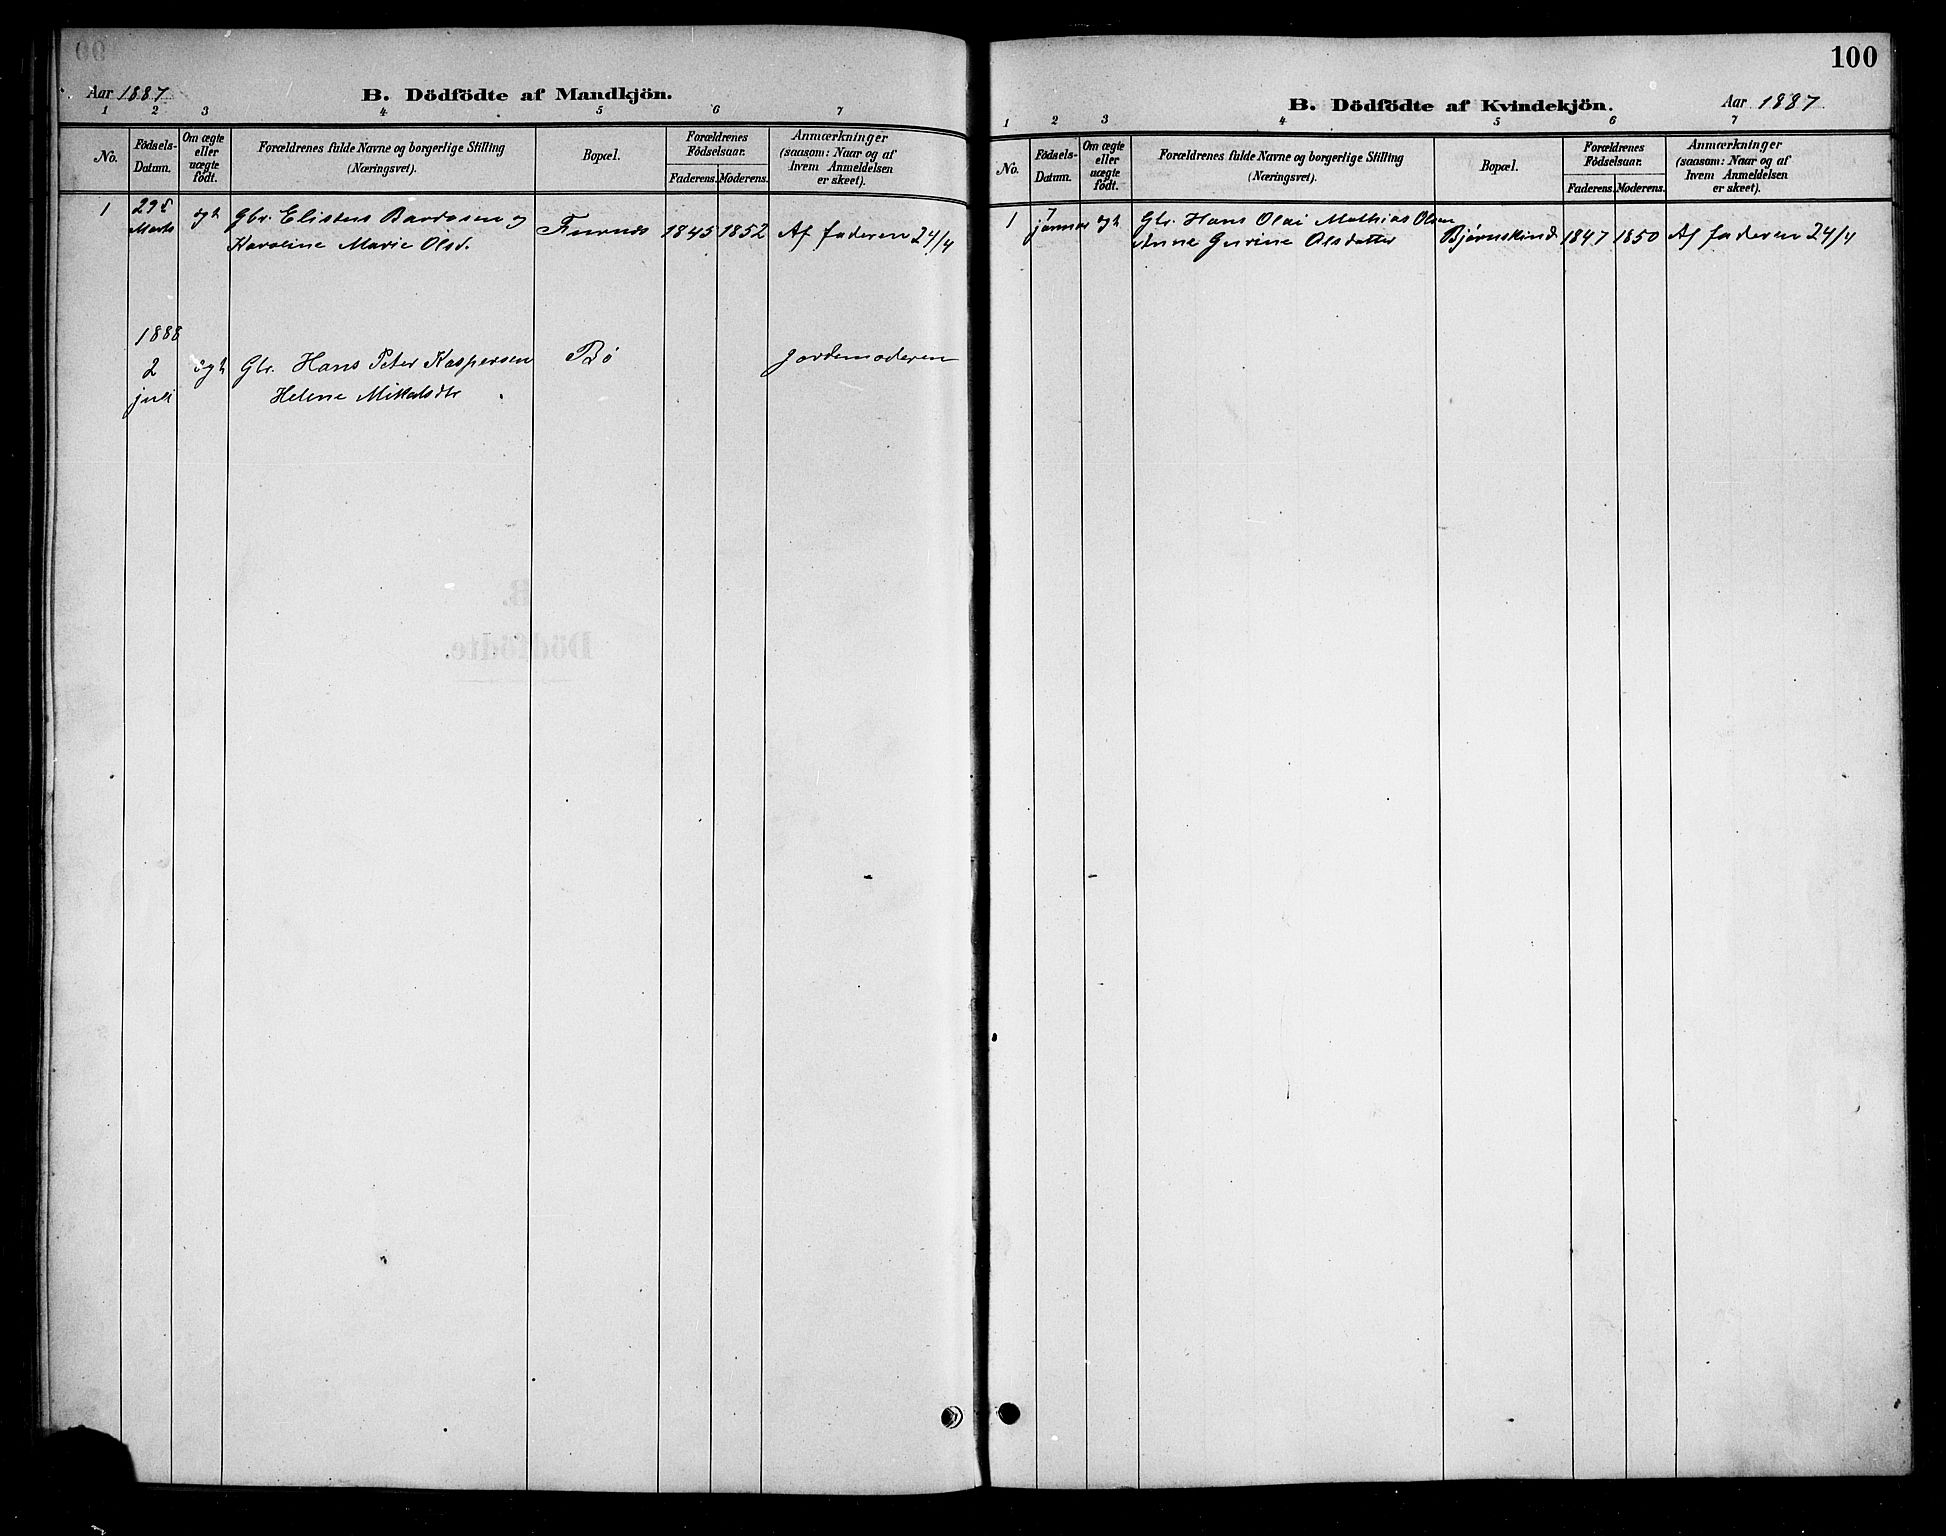 100
Aar 1887
B. Dödfödte af Mandkjön.
1 2 3 4 5 6 7
No.
Födsels-Datum.
Om ægte eller uægte födt.
Forældrenes fulde Navne og borgerlige Stilling
(Næringsvei).
Bopæl.
Forældrenes Födselsaar.
Faderens. Moderens.
Anmærkninger
(saasom: Naar og af
hvem Anmeldelsen
er skeet).
1 29 Marts ægt Gbr. Elisteus Bardosen og
Karoline Marie Olsd. 1845 1852 Af faderen 24/4
1888
2 juli ægt Gbr. Hans Peter Kaspersen Bø jordemoderen
Helene Mikalsdtr
B.
Dödfödte.
B. Dödfödte af Kvindekjön.
Aar 1887.
1 2 3 4 5 6 7
No.
Födsels-Datum.
Om ægte eller uægte födt.
Forældrenes fulde Navne og borgerlige Stilling
(Næringsvei).
Bopæl.
Forældrenes Födselsaar.
Faderens. Moderens.
Anmærkninger
(saasom: Naar og af
hvem Anmeldelsen
er skeet).
1 7 januar ægt Gbr. Hans Olai Mathias Olsen
Anne Gurine Olsdatter Bjørnskind 1847 1850 Af faderen 24/4